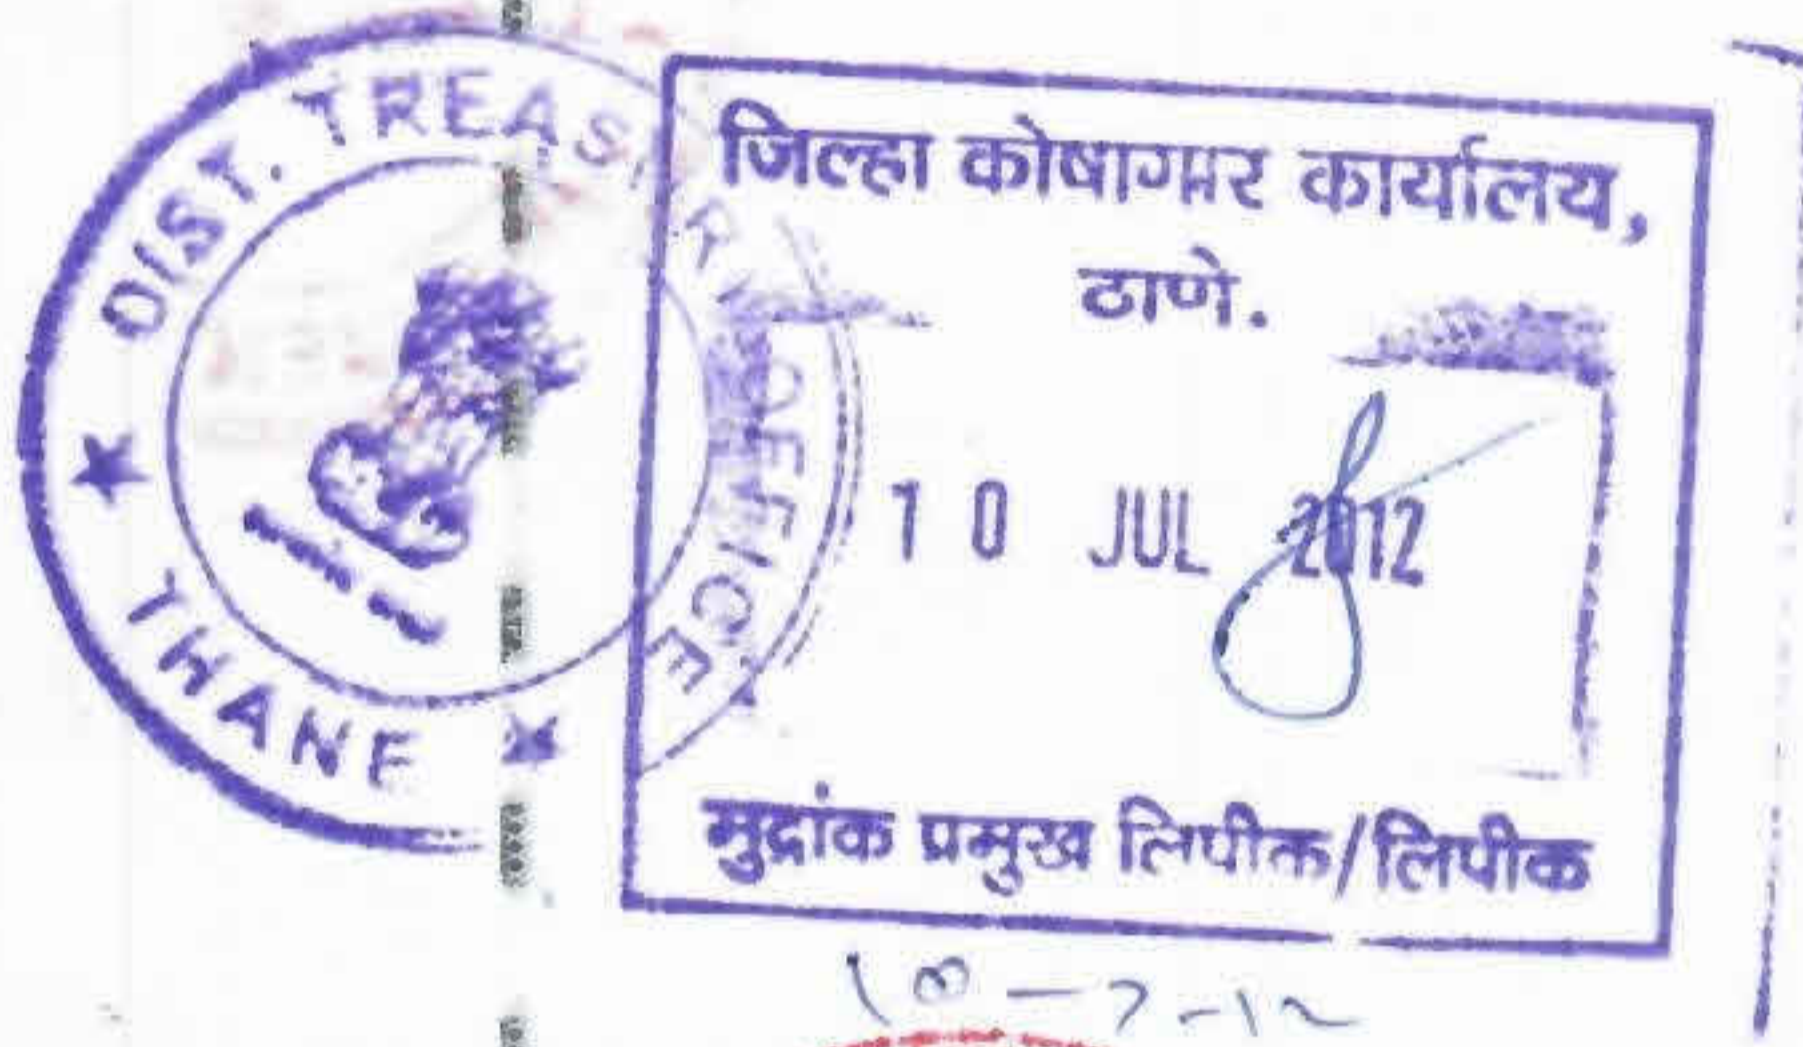 DIST. TREASURY OFFICE
★ THANE ★
जिल्हा कोषागार कार्यालय,
ठाणे.
10 JUL 2012
मुद्रांक प्रमुख लिपीक/लिपीक